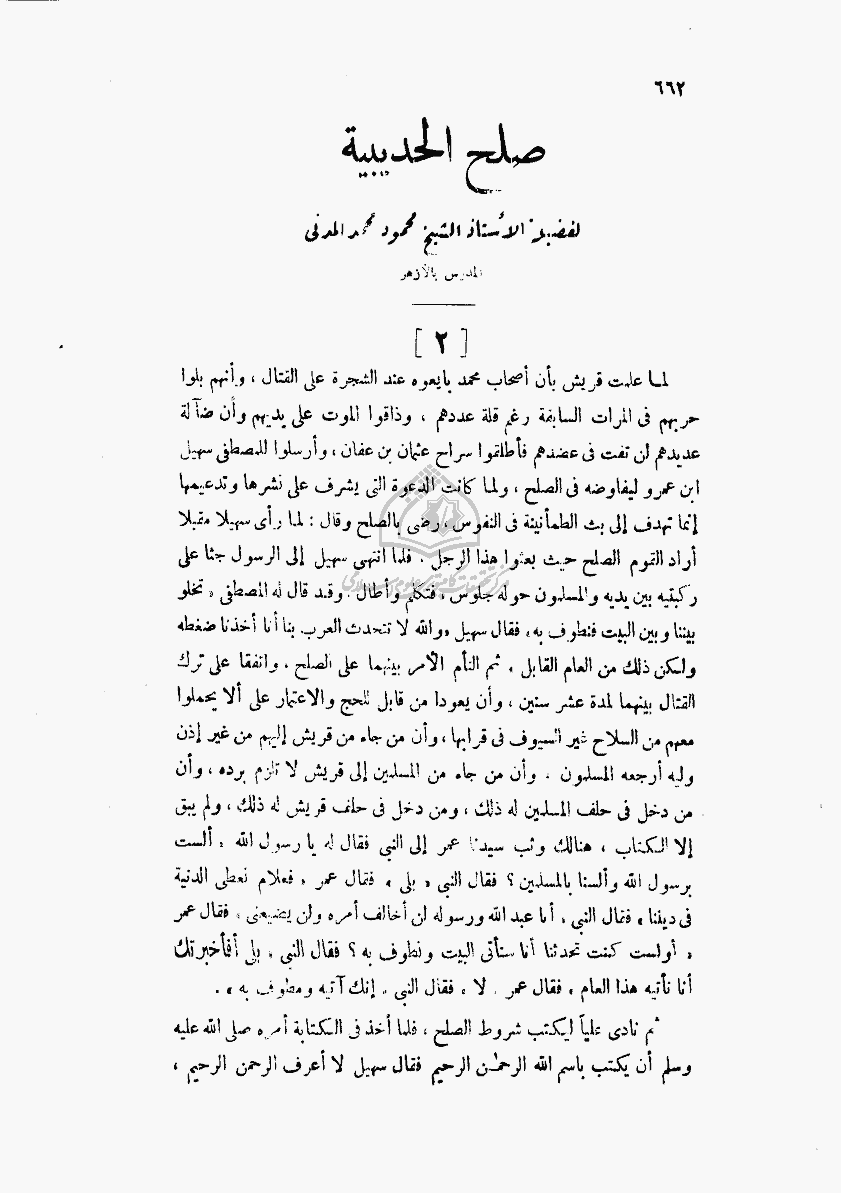 ٦٦٢
صلح الحديبية
لفضيلة الأستاذ الشيخ محمود محمد المدنى
المدرس بالأزهر
[ ٢ ]
لمـا علمت قريش بأن أصحاب محمد بايعوه عند الشجرة على القتال ، وأنهم بلوا
حربهم فى المرات السابقة رغم قلة عددهم ، وذاقوا الموت على يديهم وأن ضآلة
عديدهم لن تفت فى عضدهم فأطلقوا سراح عثمان بن عفان ، وأرسلوا للمصطفى سهيل
ابن عمرو ليفاوضه فى الصلح ، ولما كانت الدعوة التى يشرف على نشرها وتدعيمها
إنما تهدف إلى بث الطمأنينة فى النفوس ، رضى بالصلح وقال : لما رأى سهيلا مقبلا
أراد القوم الصلح حيث بعثوا هذا الرجل . فلما انتهى سهيل إلى الرسول جثا على
ركبتيه بين يديه والمسلمون حوله جلوس ، فتكلم وأطال . وقد قال له المصطفى « تخلو
بيننا وبين البيت فنطوف به » فقال سهيل « والله لا تتحدث العرب بنا أنا أخذنا ضغطه
ولكن ذلك من العام القابل » ثم التأم الأمر بينهما على الصلح ، واتفقا على ترك
القتال بينهما لمدة عشر سنين ، وأن يعودا من قابل للحج والاعتمار على ألا يحملوا
معهم من السلاح غير السيوف فى قرابها ، وأن من جاء من قريش إليهم من غير إذن
وليه أرجعه المسلمون . وأن من جاء من المسلمين إلى قريش لا تلزم برده ، وأن
من دخل فى حلف المسلمين له ذلك ، ومن دخل فى حلف قريش له ذلك ، ولم يبق
إلا الكتاب ، هنالك وثب سيدنا عمر إلى النبى فقال له يا رسول الله « ألست
برسول الله وألسنا بالمسلمين ؟ فقال النبى « بلى » فقال عمر « فعلام نعطى الدنية
فى ديننا » فقال النبى « أنا عبد الله ورسوله لن أخالف أمره ولن يضيعنى » فقال عمر
« أولست كنت تحدثنا أنا سنأتى البيت ونطوف به ؟ فقال النبى « بلى أفأخبرتك
أنا نأتيه هذا العام » فقال عمر « لا » فقال النبى « إنك آتيه ومطوف به » .
ثم نادى علياً ليكتب شروط الصلح ، فلما أخذ فى الكتابة أمره صلى الله عليه
وسلم أن يكتب باسم الله الرحمن الرحيم فقال سهيل لا أعرف الرحمن الرحيم ،